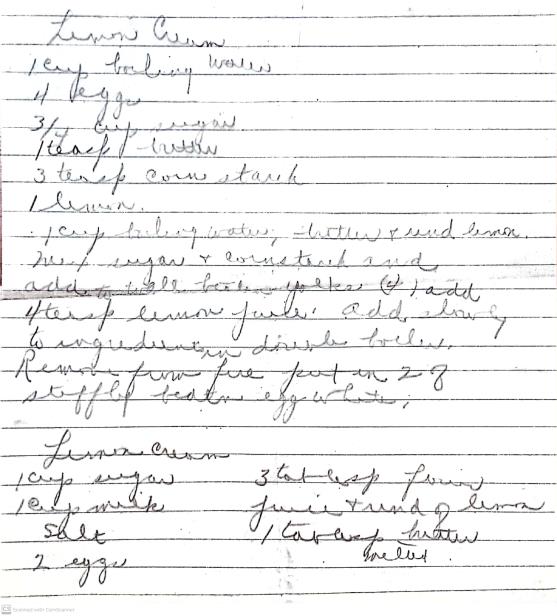 Lemon Cream
1 cup boiling water
4 eggs
3/4 cup sugar
1 teasp butter
3 teasp corn starch
1 lemon.
1 cup boiling water, butter & rind lemon.
Mix sugar & cornstarch and
add to well beaten yolks (4) add
4 teasp lemon juice. Add slowly
to ingredients in double boiler.
Remove from fire put in 2 of
stiffly beaten egg white,
Lemon Cream
1 cup sugar 3 tablesp flour
1 cup milk juice & rind of lemon
Salt 1 tablesp butter
2 eggs melted.
CS Scanned with CamScanner